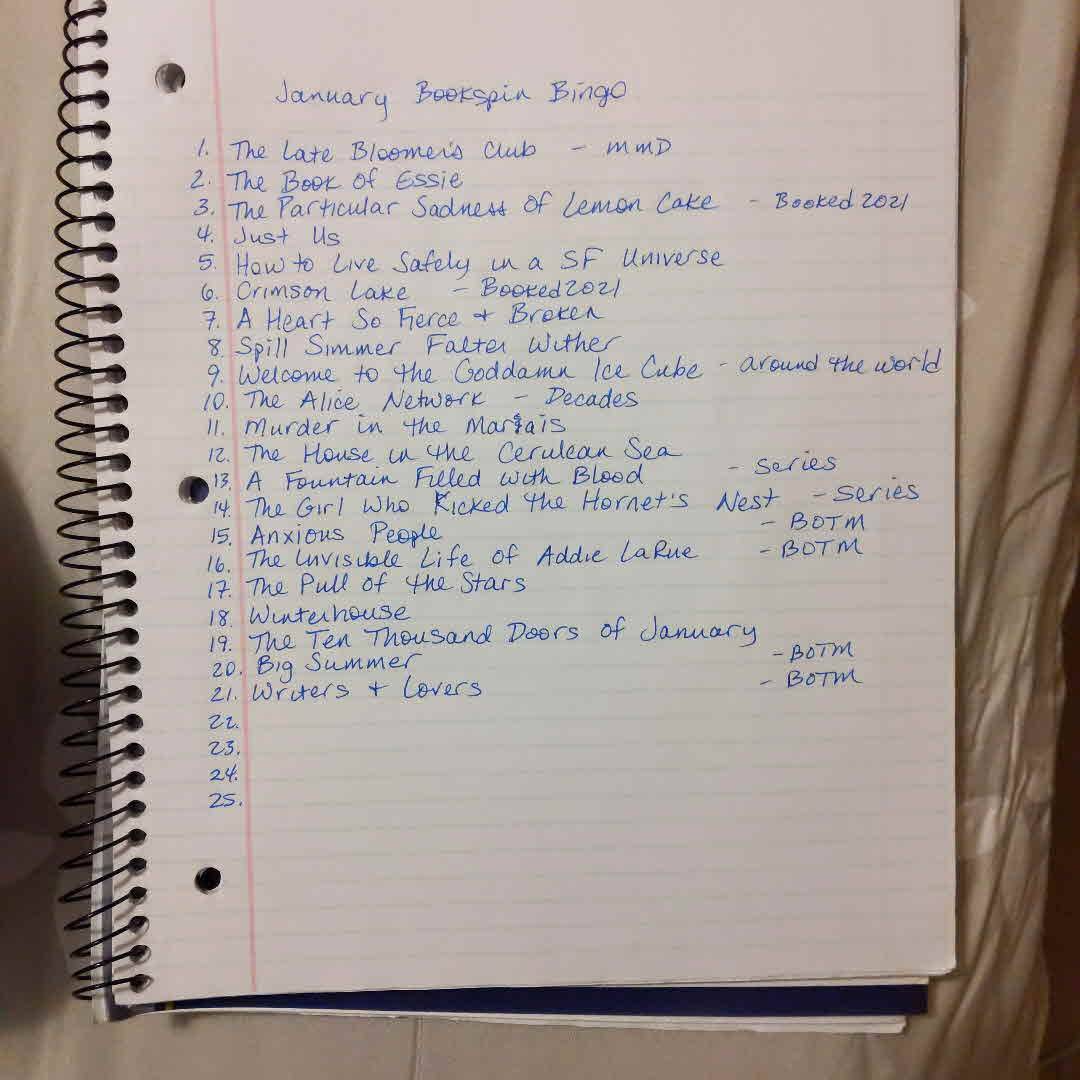 January Bookspin Bingo
1. The Late Bloomer's Club - MMD
2. The Book of Essie
3. The Particular Sadness of Lemon Cake - Booked 2021
4. Just Us
5. How to Live Safely in a SF Universe
6. Crimson Lake - Booked 2021
7. A Heart So Fierce + Broken
8. Spill Simmer Falter Wither
9. Welcome to the Goddamn Ice Cube - around the world
10. The Alice Network - Decades
11. Murder in the Marais
12. The House in the Cerulean Sea
13. A Fountain Filled with Blood - Series
14. The Girl Who Kicked the Hornet's Nest - Series
15. Anxious People - BOTM
16. The Invisible Life of Addie LaRue - BOTM
17. The Pull of the Stars
18. Winterhouse
19. The Ten Thousand Doors of January
20. Big Summer - BOTM
21. Writers + Lovers - BOTM
22.
23.
24.
25.